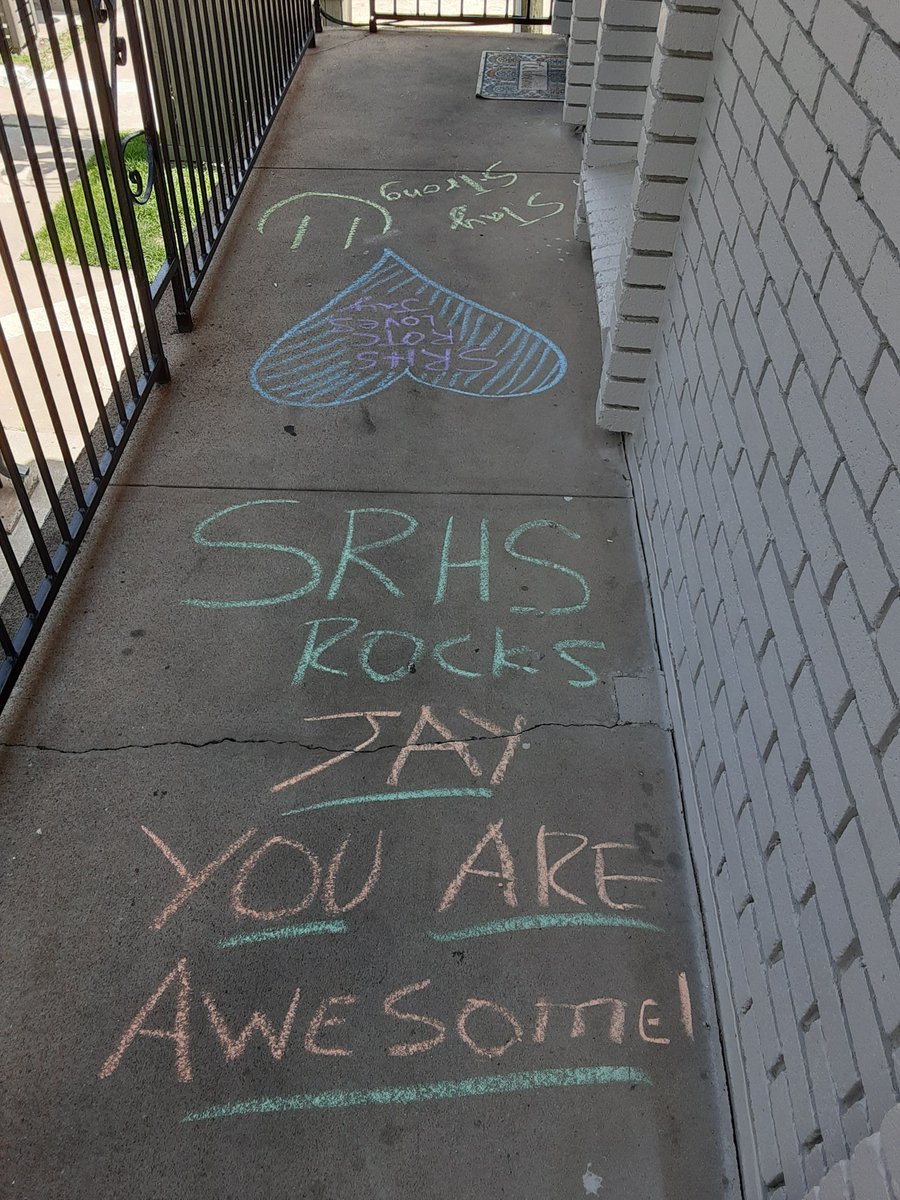 Stay
Strong
SRHS
ROTC
LOVES
Jay
SRHS
ROCKS
JAY
YOU ARE
AWESOME!